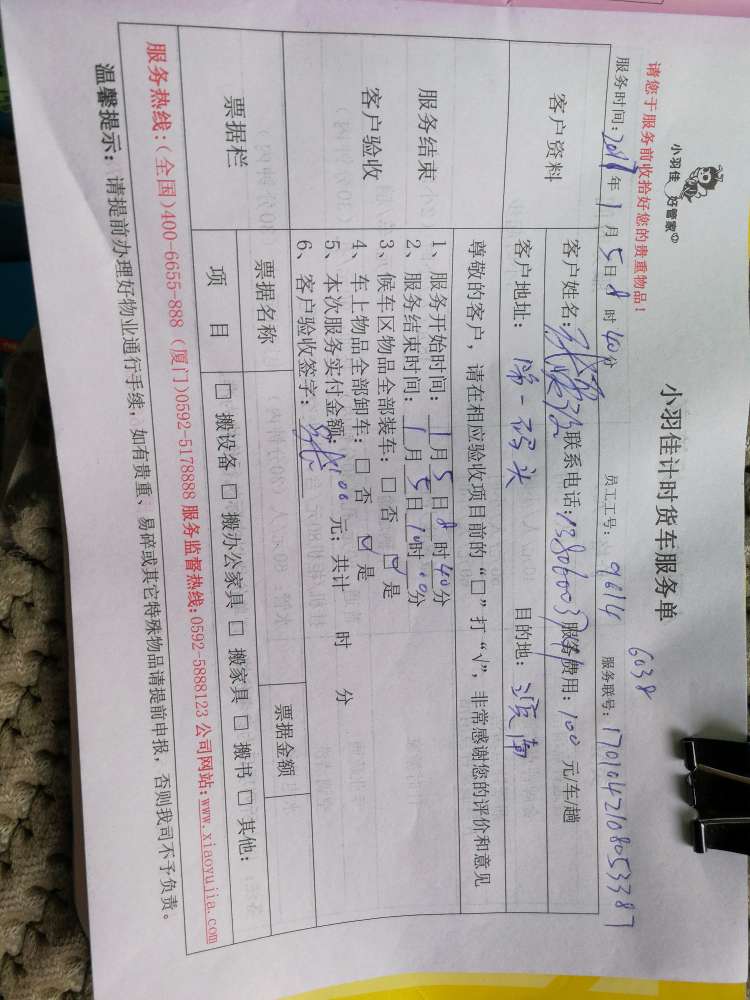 小羽佳 好管家
小羽佳计时货车服务单
6038
请您于服务前收拾好您的贵重物品！
服务时间：2017年1月5日8时40分 员工工号：9614 服务联号：1701042108053387
客户资料
客户姓名： 联系电话：1380600 服务费用：100元/车/趟
客户地址：第一码头 目的地：
服务结束
客户验收
尊敬的客户，请在相应验收项目前的“□”打“√”，非常感谢您的评价和意见
1、服务开始时间：1月5日8时40分
2、服务结束时间：1月5日10时00分
3、候车区物品全部装车：□ 否 ☑ 是
4、车上物品全部卸车：□ 否 ☑ 是
5、本次服务实付金额： 元；共计 时 分
6、客户验收签字：
票据栏
票据名称 票据金额
项 目 □ 搬设备 □ 搬办公家具 □ 搬家具 □ 搬书 □ 其他：
服务热线：(全国)400-6655-888 (厦门)0592-5178888 服务监督热线：0592-5888123 公司网站：www.xiaoyujia.com
温馨提示：请提前办理好物业通行手续，如有贵重、易碎或其它特殊物品请提前申报，否则我司不予负责。